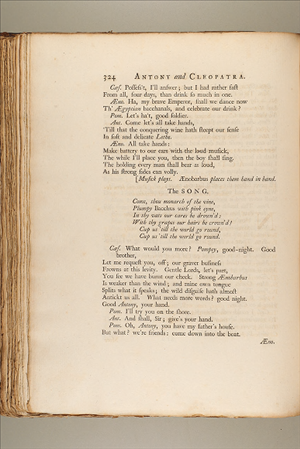 324 ANTONY and CLEOPATRA.
Cæs. Possess't, I'll answer; but I had rather fast
From all, four days, than drink so much in one.
Æno. Ha, my brave Emperor, shall we dance now
Th' Ægyptian bacchanals, and celebrate our drink?
Pom. Let's ha't, good soldier.
Ant. Come let's all take hands,
'Till that the conquering wine hath steept our sense
In soft and delicate Lethe.
Æno. All take hands:
Make battery to our ears with the loud musick,
The while I'll place you, then the boy shall sing.
The holding every man shall bear as loud,
As his strong sides can volly.
[Musick plays. Ænobarbus places them hand in hand.
The SONG.
Come, thou monarch of the vine,
Plumpy Bacchus with pink eyne,
In thy vats our cares be drown'd:
With thy grapes our hairs be crown'd!
Cup us till the world go round,
Cup us till the world go round.
Cæs. What would you more? Pompey, good-night. Good
brother,
Let me request you, off; our graver business
Frowns at this levity. Gentle Lords, let's part,
You see we have burnt our cheek. Strong Ænobarbus
Is weaker than the wind; and mine own tongue
Splits what it speaks; the wild disguise hath almost
Antickt us all. What needs more words? good night.
Good Antony, your hand.
Pom. I'll try you on the shore.
Ant. And shall, Sir; give's your hand.
Pom. Oh, Antony, you have my father's house.
But what? we're friends: come down into the boat.
Æno.